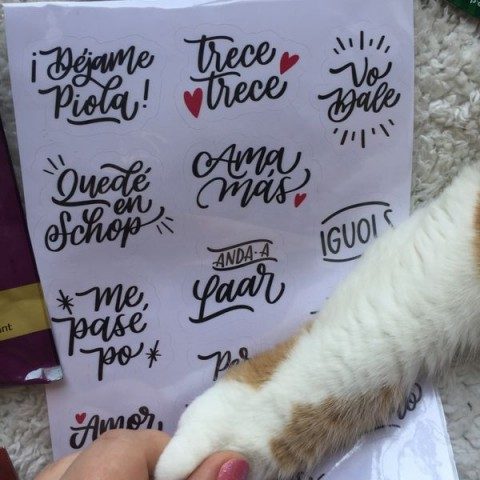 ¡Déjame
Piola!
trece
trece
Vo
Dale
Quedé
en
Schop
Ama
más
IGUOLS
ANDA-A
Laar
Me,
pase
po
Amor